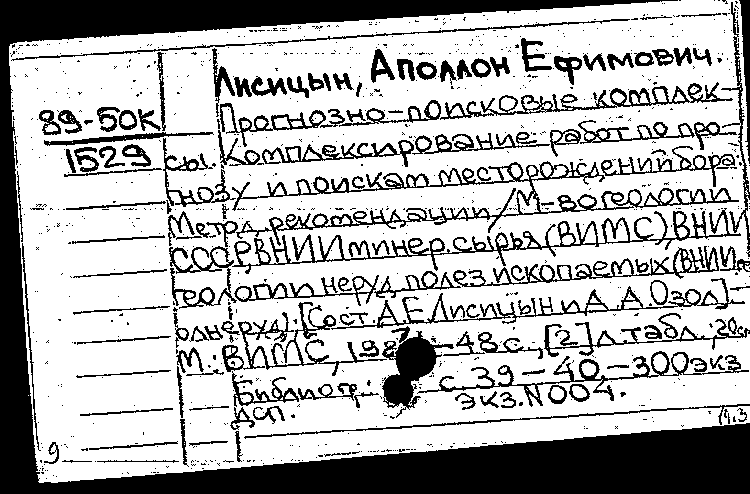 Лисицын, Аполлон Ефимович.
89-50К
1529
Прогнозно-поисковые комплек-
сы. Комплексирование работ по про-
гнозу и поискам месторождений бора:
Метод. рекомендации / М-во геологии
СССР, ВНИИ минер. сырья (ВИМС), ВНИИ
геологии неруд. полез. ископаемых (ВНИИге-
олнеруд); [Сост. А.Е. Лисицын и А.А. Озол]. -
М.: ВИМС, - 48 с., [2] л. табл.; 20см
Библиогр.: с. 39-40 - 300 экз
дсп. Экз. N 004.
9